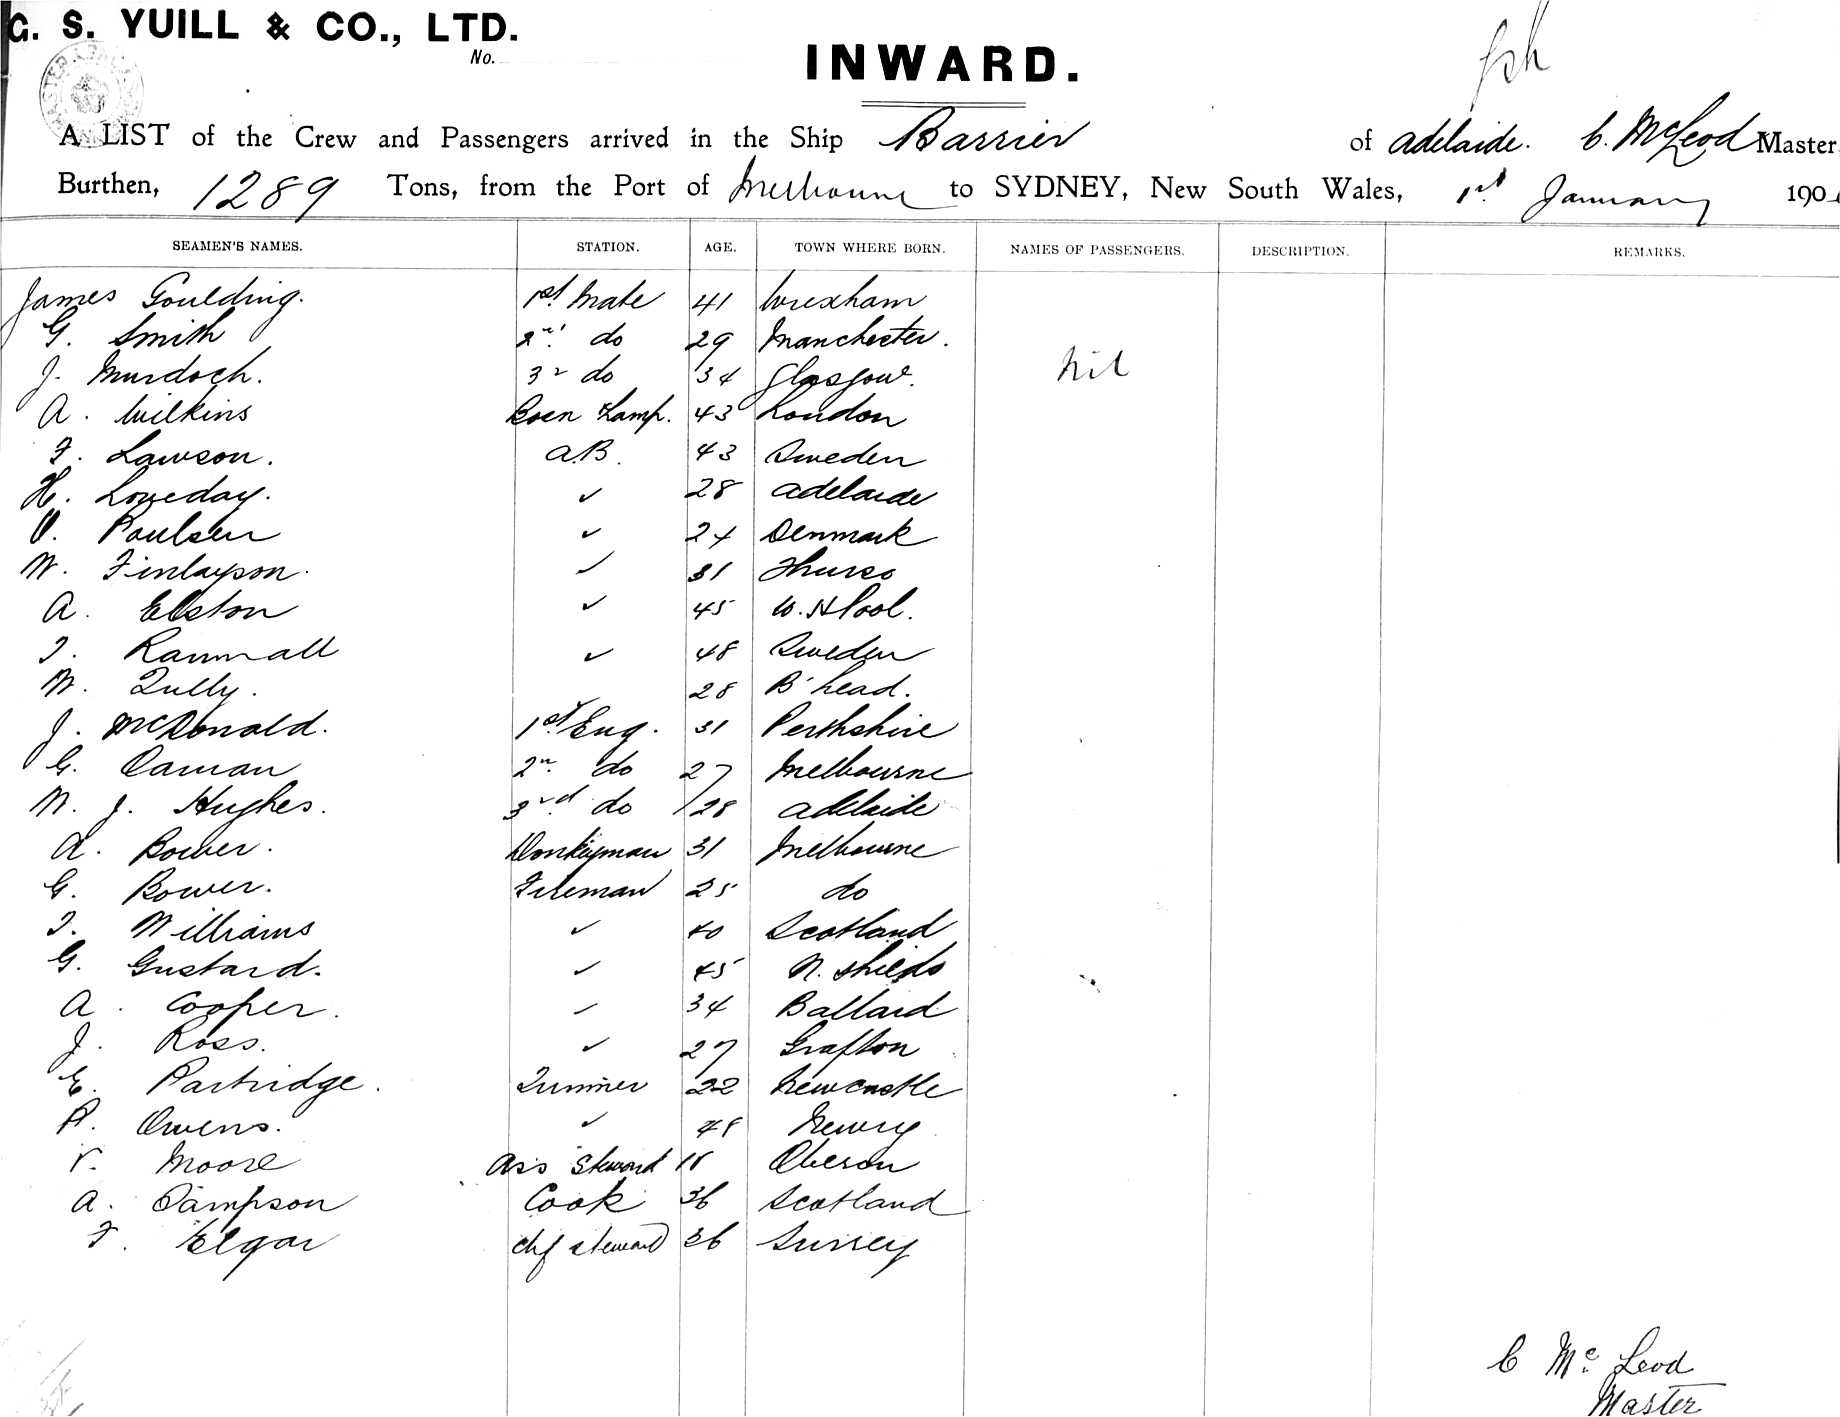 G. S. YUILL & CO., LTD.
No.
INWARD.
A LIST of the Crew and Passengers arrived in the Ship Barrier of Adelaide. C. McLeod Master
Burthen, 1289 Tons, from the Port of Melbourne to SYDNEY, New South Wales, 1st January 190
SEAMEN'S NAMES. STATION. AGE. TOWN WHERE BORN. NAMES OF PASSENGERS. DESCRIPTION. REMARKS.
James Goulding. 1st Mate 41 Wrexham
G. Smith 2nd do 29 Manchester.
J. Murdoch. 3r do 34 Glasgow. Nil
A. Wilkins Bosn Lamp. 43 London
F. Lawson. A.B. 43 Sweden
H. Loveday. ✓ 28 Adelaide
V. Poulsen ✓ 24 Denmark
W. Finlayson. ✓ 31 Thurso
A. Elston ✓ 45 W. H Pool.
J. Ranmall ✓ 48 Sweden
W. Tully. 28 B'head.
J. McDonald. 1st Eng. 31 Perthshire
G. 2n. do 27 Melbourne
W. J. Hughes. 3rd do 28 Adelaide
A. Bower. Donkeyman 31 Melbourne
G. Bower. Fireman 25 do
J. Williams ✓ 40 Scotland
G. Gustard. ✓ 45 N. Shields
A. Cooper. ✓ 34 Ballard
J. Ross. ✓ 27 Grafton
E. Partridge. Trimmer 22 Newcastle
R. Owens. ✓ 48 Newry
V. Moore Ass Steward 18 Oberon
A. Sampson Cook 36 Scotland
F. Elgar chf steward 36 Surrey
C Mc Leod
Master